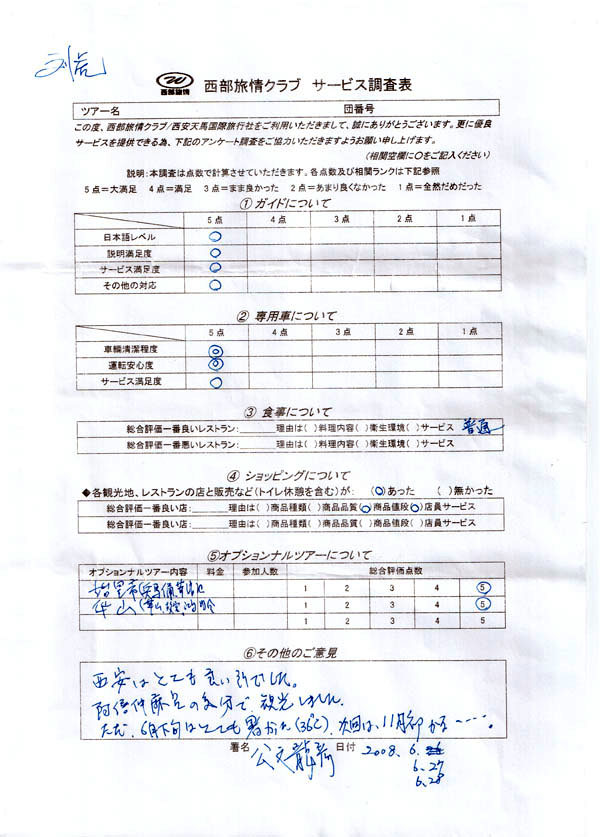 刘虎
西部旅情
西部旅情クラブ サービス調査表
ツアー名 団番号
この度、西部旅情クラブ/西安天馬国際旅行社をご利用いただきまして、誠にありがとうございます。更に優良
サービスを提供できる為、下記のアンケート調査をご協力いただきますようお願い申し上げます。
(相関空欄に○をご記入ください)
説明:本調査は点数で計算させていただきます。各点数及び相関ランクは下記参照
5点=大満足 4点=満足 3点=まま良かった 2点=あまり良くなかった 1点=全然だめだった
①ガイドについて
5点 4点 3点 2点 1点
日本語レベル ○
説明満足度 ○
サービス満足度 ○
その他の対応 ○
② 専用車について
5点 4点 3点 2点 1点
車輌清潔程度 ◎
運転安心度 ◎
サービス満足度 ○
③ 食事について
総合評価一番良いレストラン:______理由は( )料理内容( )衛生環境( )サービス 普通
総合評価一番悪いレストラン:______理由は( )料理内容( )衛生環境( )サービス
④ ショッピングについて
◆各観光地、レストランの店と販売など(トイレ休憩を含む)が: (○)あった ( )無かった
総合評価一番良い店:______理由は( )商品種類( )商品品質(○)商品値段( )店員サービス
総合評価一番悪い店:______理由は( )商品種類( )商品品質(○)商品値段( )店員サービス
⑤オプションナルツアーについて
オプションナルツアー内容 料金 参加人数 総合評価点数
1 2 3 4 5
華山 1 2 3 4 5
1 2 3 4 5
⑥その他のご意見
西安はとても良い所でした。
阿倍仲麻呂の気分で観光しました。
ただ、6月下旬はとても暑かった(36℃)、次回は、11月初かな……。
署名 日付 2008. 6. 26
6.27
6.28